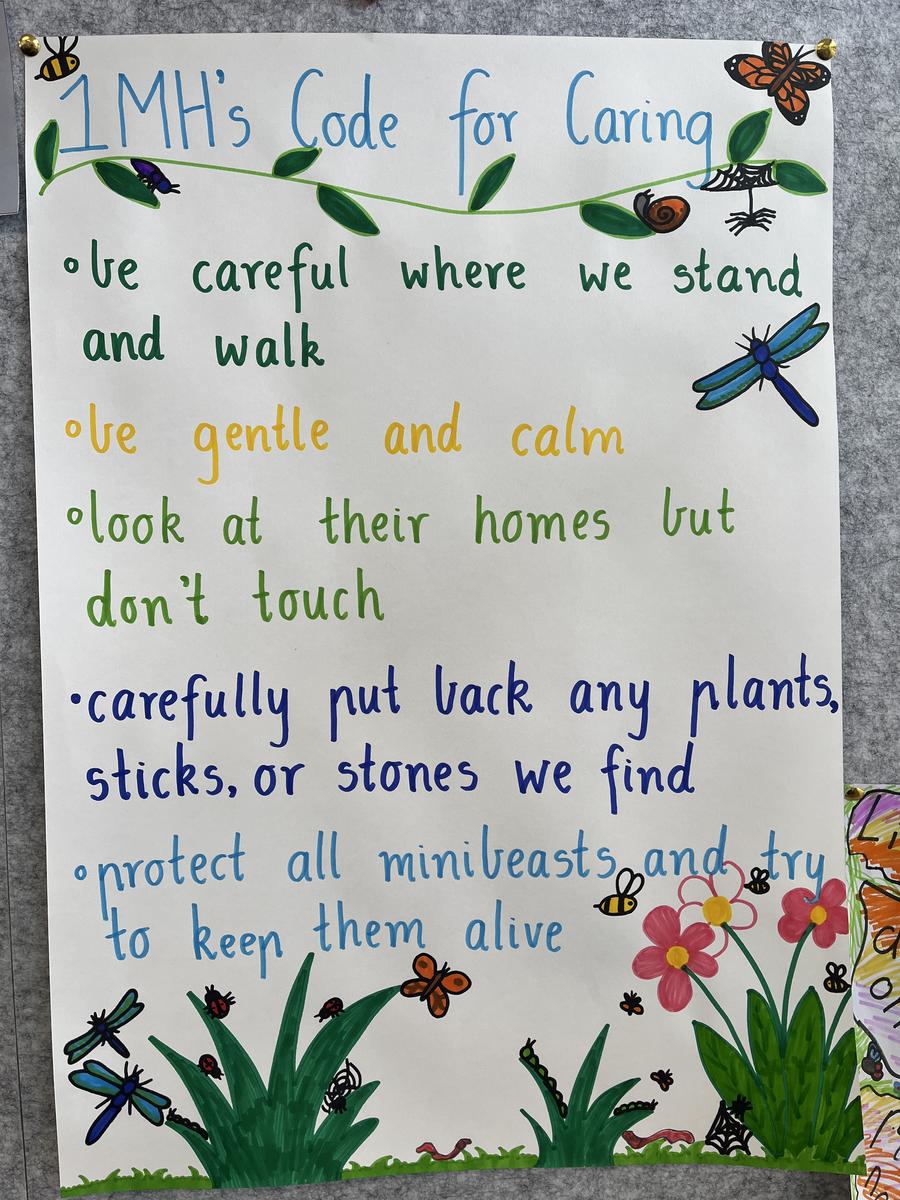 1MH's Code for Caring
•be careful where we stand
and walk
•be gentle and calm
•look at their homes but
don't touch
•carefully put back any plants,
sticks, or stones we find
•protect all minibeasts and try
to keep them alive